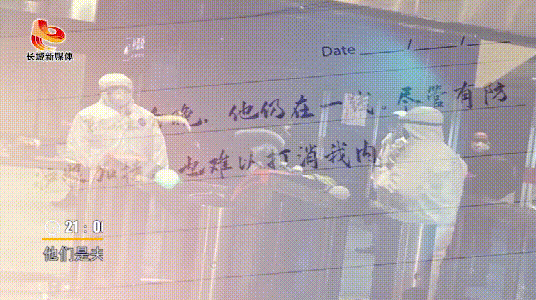 长城新媒体
Date / /
他仍在一线.尽管有防
也难以打消我内
21:0
他们是夫